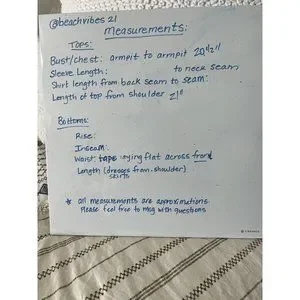 @beachvibes21
Measurements:
Tops:
Bust/chest: armpit to armpit 20"1/2"
Sleeve Length: to neck seam
Shirt length from back seam to seam:
Length of top from shoulder 21"
Bottoms:
Rise:
Inseam:
Waist tape lying flat across front
Length (dresses from shoulder)
skirts
* all measurements are approximations
Please feel free to msg with questions